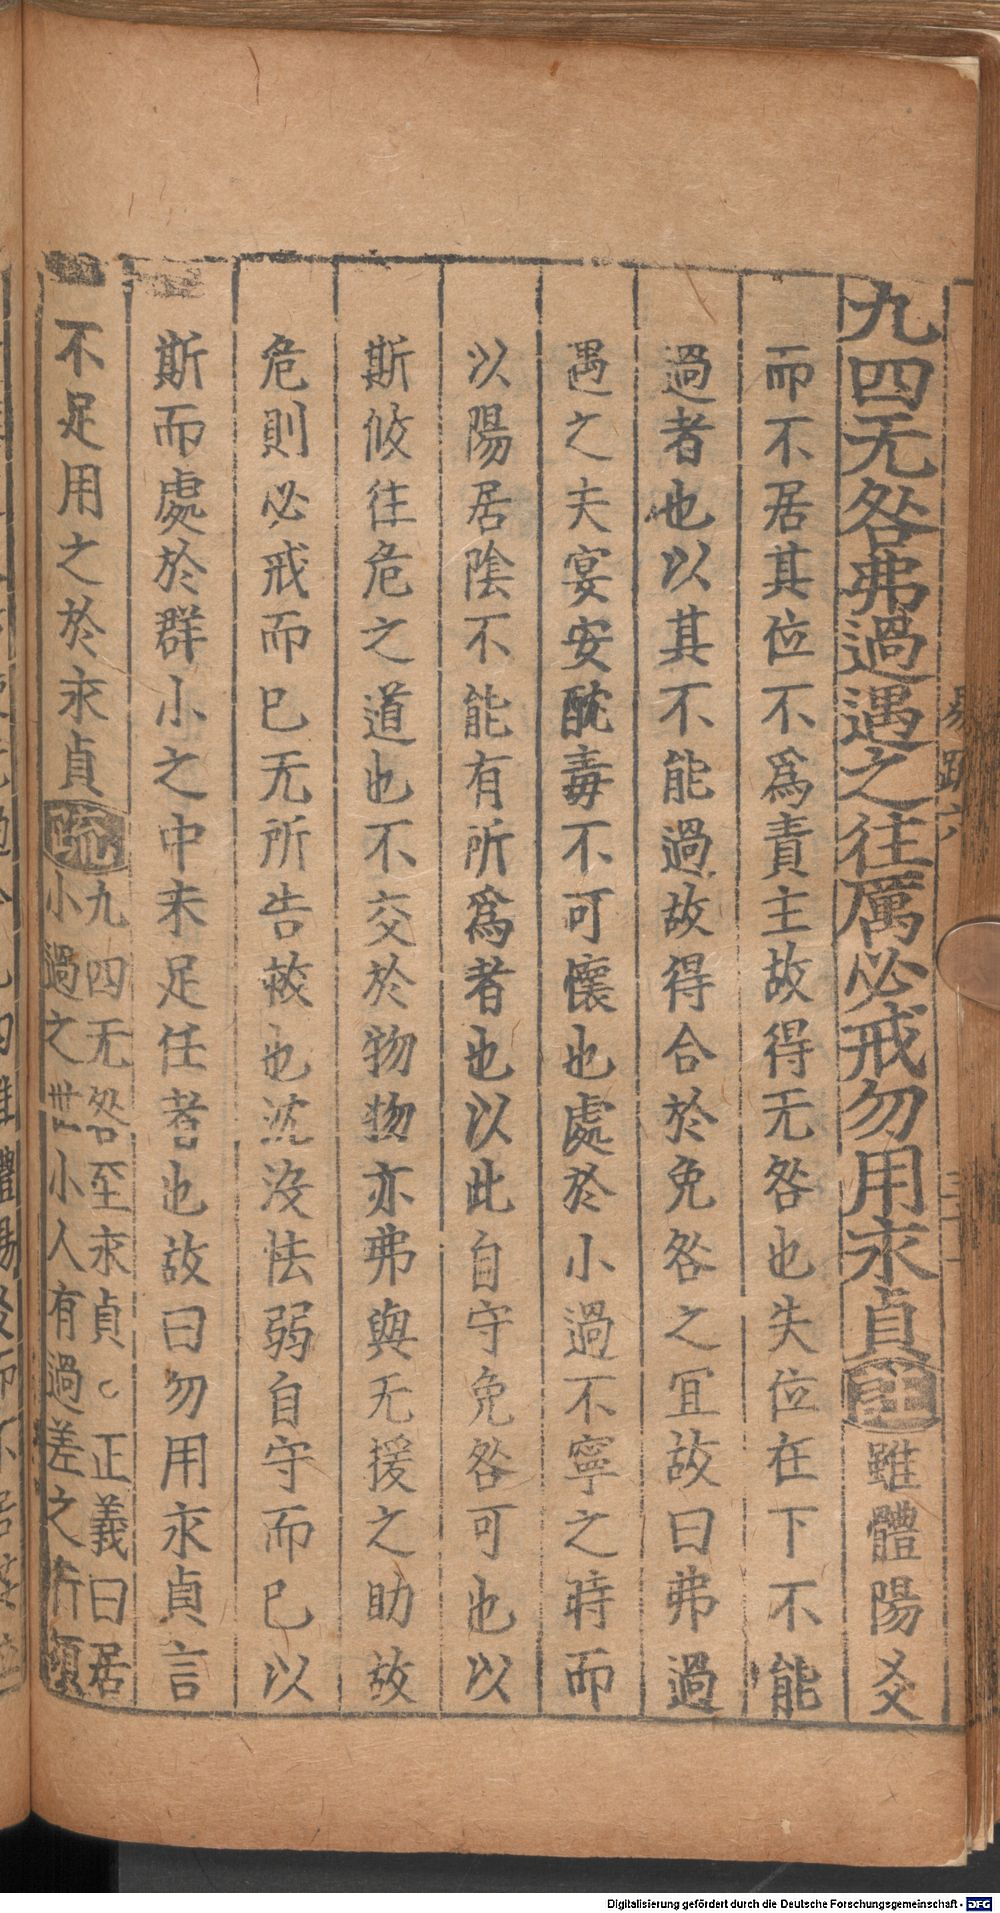 九四无咎弗過遇之往厲必戒勿用永貞註雖體陽爻
而不居其位不爲責主故得无咎也失位在下不能
過者也以其不能過故得合於免咎之宜故曰弗過
遇之夫宴安酖毒不可懷也處於小過不寧之時而
以陽居陰不能有所爲者也以此自守免咎可也以
斯攸往危之道也不交於物物亦弗與无援之助故
危則必戒而已无所告救也沈没怯弱自守而已以
斯而處於群小之中未足任者也故曰勿用永貞言
不足用之於永貞疏
九四无咎至永貞 正義曰居
小過之世小人有過差之行須
易疏六
Digitalisierung gefördert durch die Deutsche Forschungsgemeinschaft - DFG